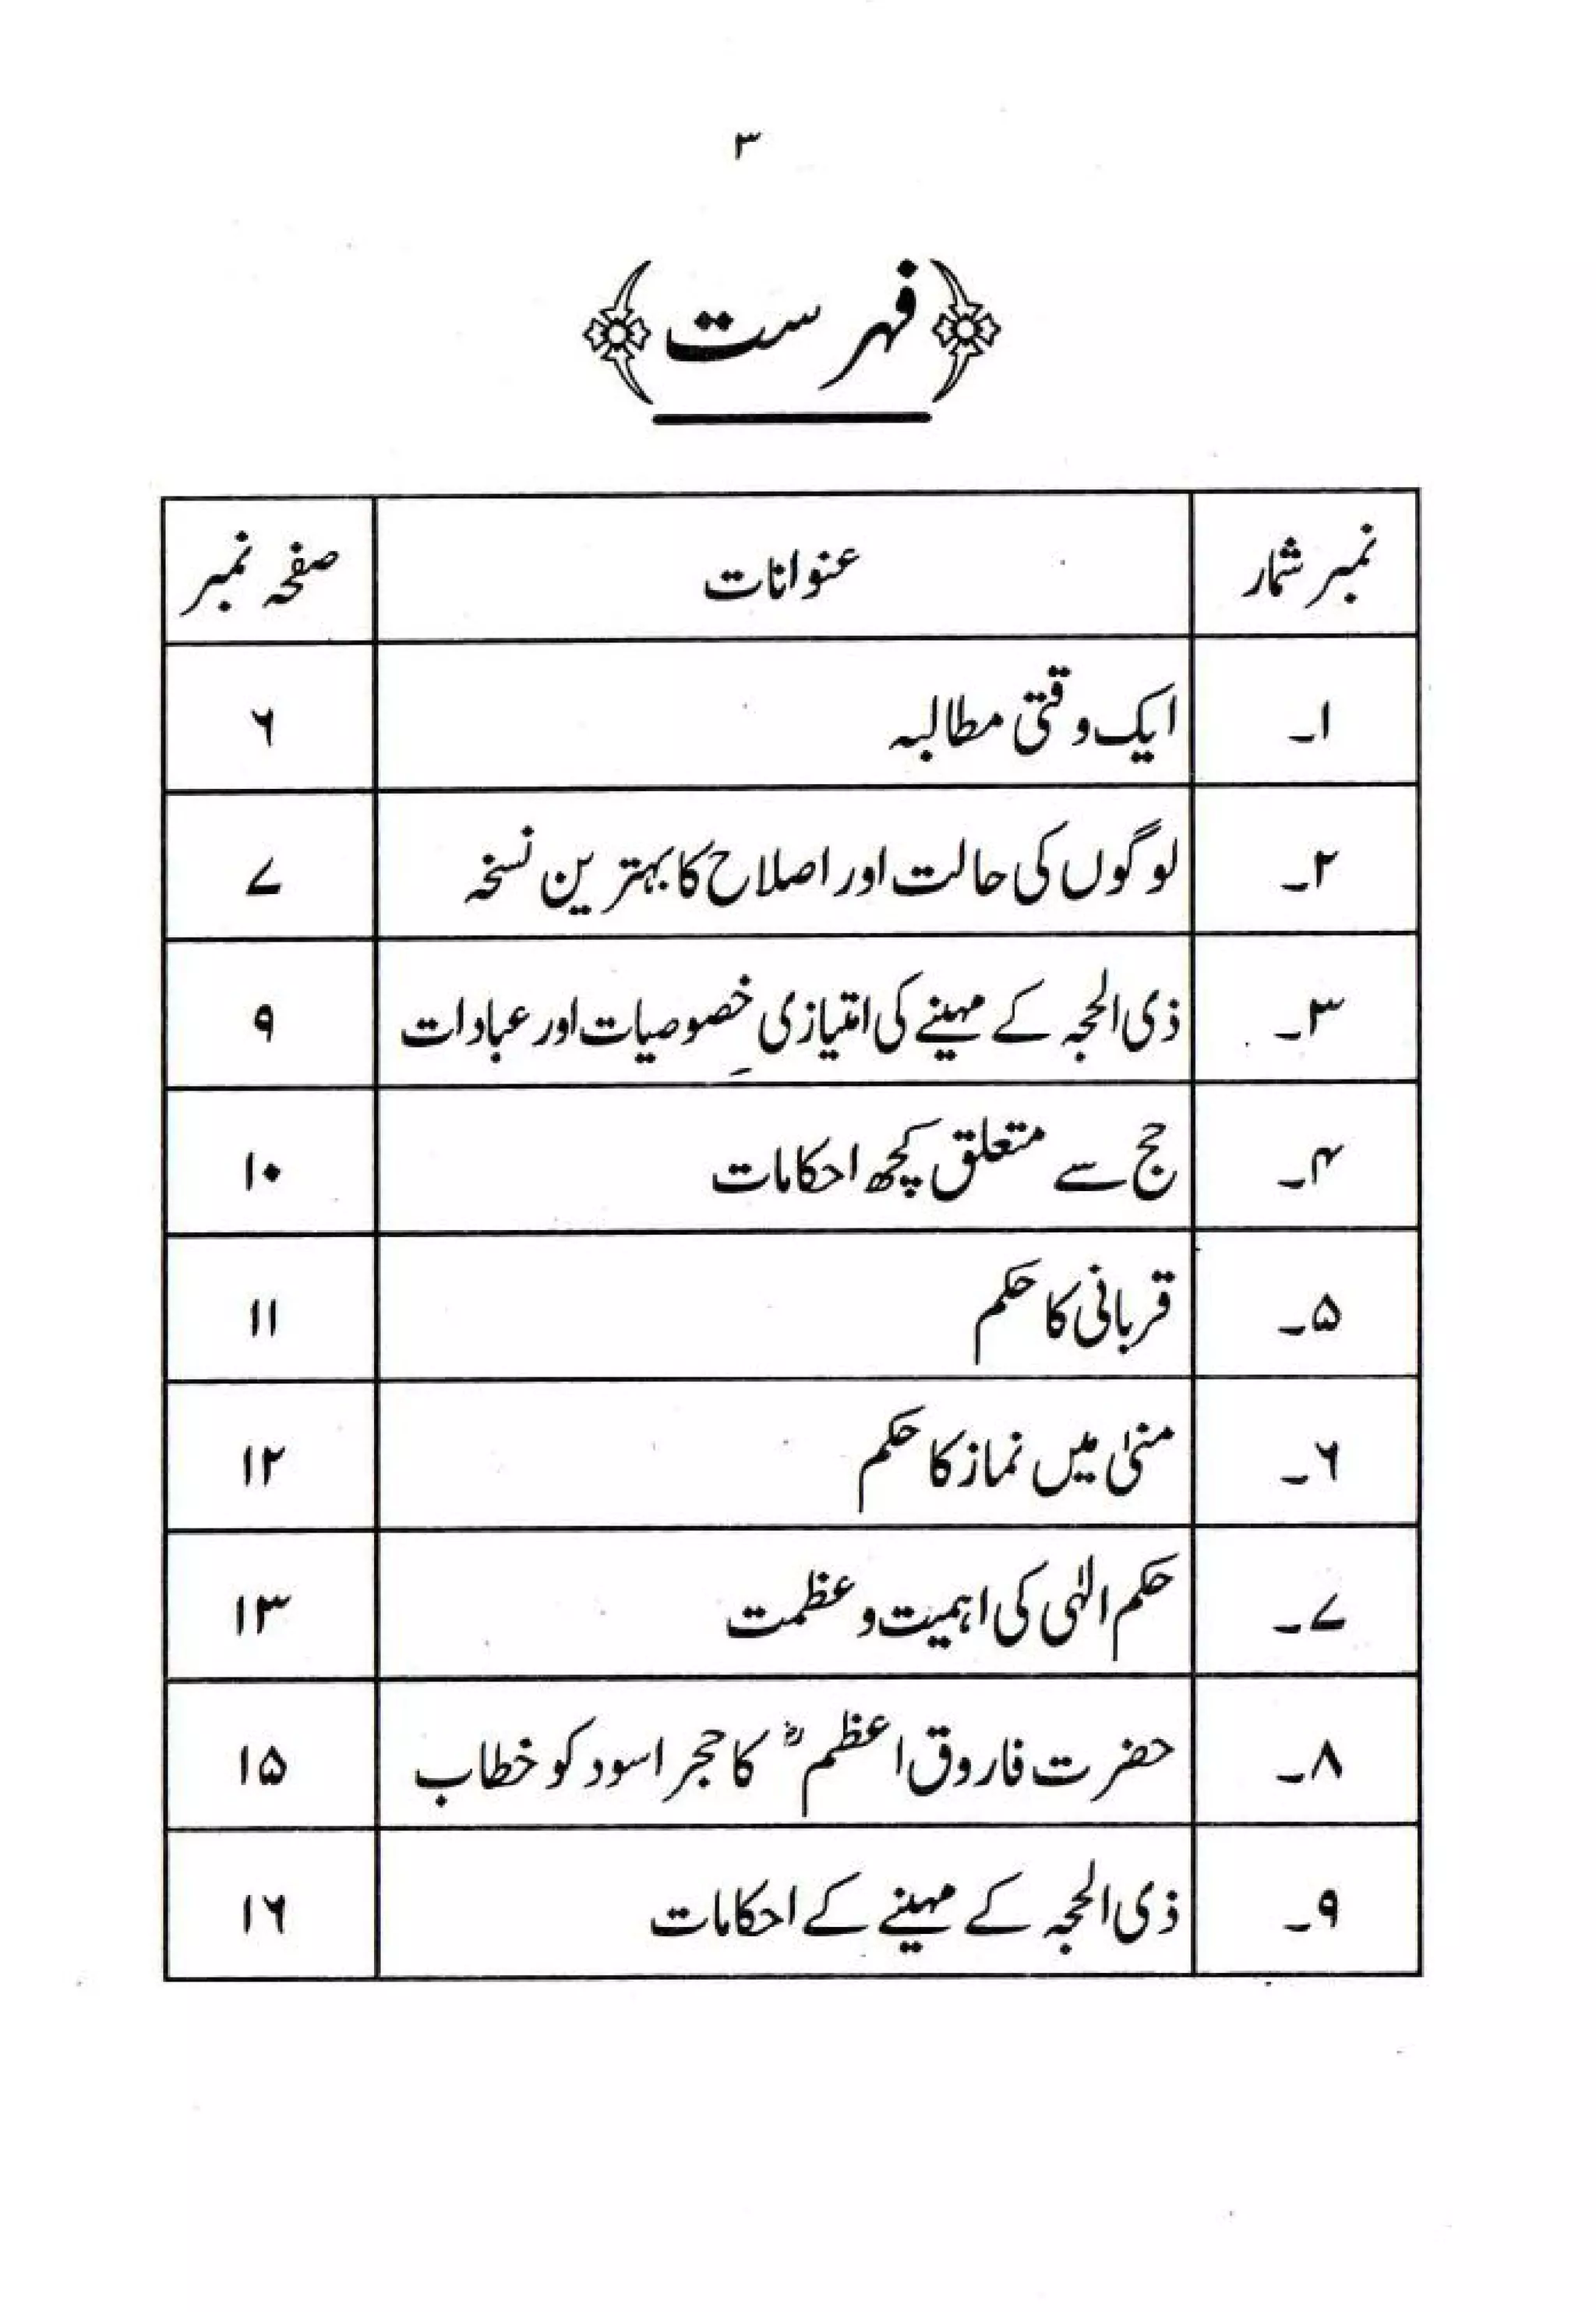 ۳
فہرست
نمبر شمار عنوانات صفحہ نمبر
۱۔ ایک وقتی مطالبہ ۶
۲۔ لوگوں کی حالت اور اصلاح کا بہترین نسخہ ۷
۳۔ ذی الحجہ کے مہینے کی امتیازی خصوصیات اور عبادات ۹
۴۔ حج سے متعلق کچھ احکامات ۱۰
۵۔ قربانی کا حکم ۱۱
۶۔ منیٰ میں نماز کا حکم ۱۲
۷۔ حکم الٰہی کی اہمیت و عظمت ۱۳
۸۔ حضرت فاروق اعظمؓ کا حجر اسود کو خطاب ۱۵
۹۔ ذی الحجہ کے مہینے کے احکامات ۱۶